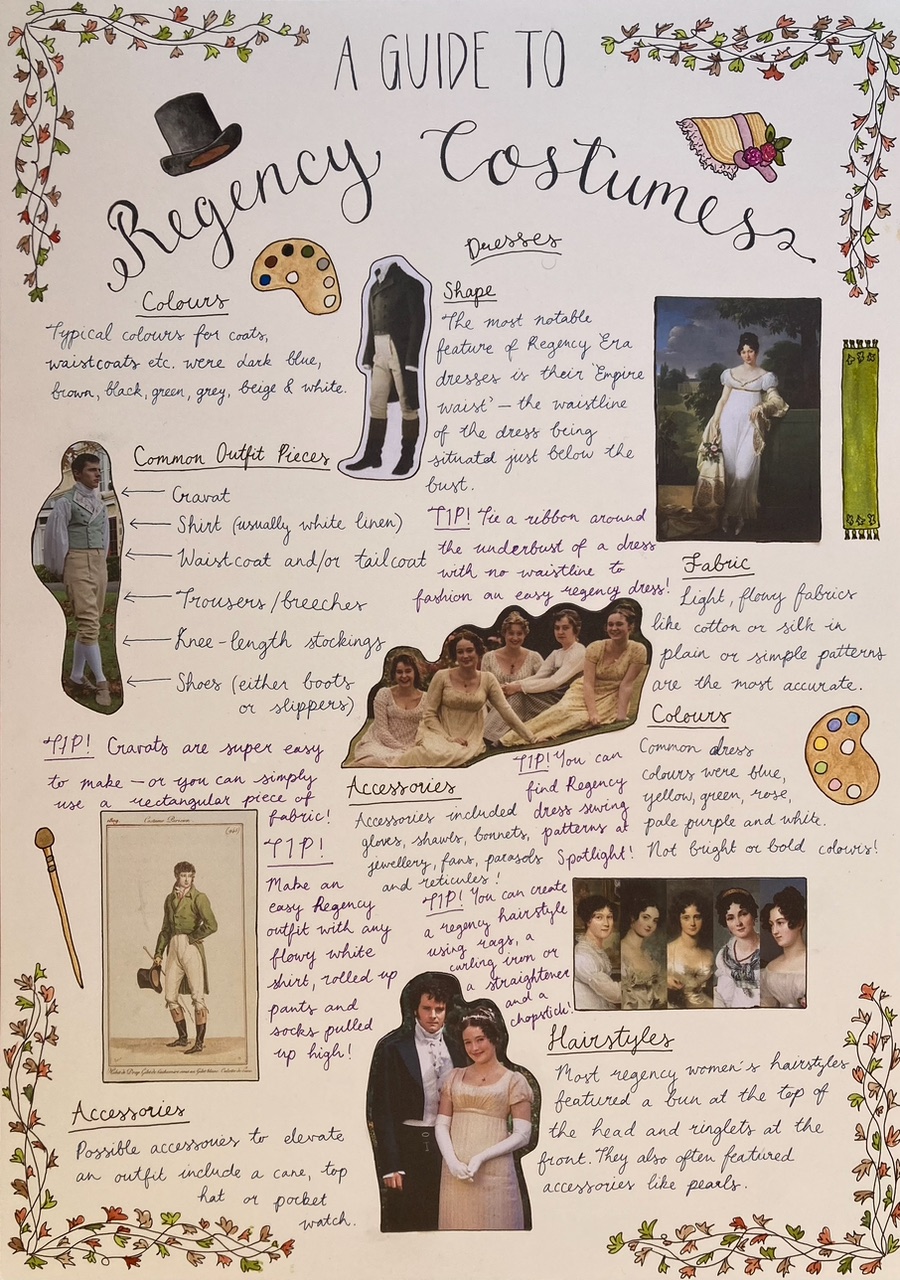 A GUIDE TO
Regency Costumes
Colours
Typical colours for coats,
waistcoats etc. were dark blue,
brown, black, green, grey, beige & white.
Common Outfit Pieces
Cravat
Shirt (usually white linen)
Waistcoat and/or tailcoat
Trousers/breeches
Knee-length stockings
Shoes (either boots
or slippers)
TIP! Cravats are super easy
to make – or you can simply
use a rectangular piece of
fabric!
1809.
Costume Parisien
TIP!
Make an
easy Regency
outfit with any
flowy white
shirt, rolled up
pants and
socks pulled
up high!
Accessories
Possible accessories to elevate
an outfit include a cane, top
hat or pocket
watch.
Dresses
Shape
The most notable
feature of Regency Era
dresses is their 'Empire
waist' – the waistline
of the dress being
situated just below the
bust.
TIP! Tie a ribbon around
the underbust of a dress
with no waistline to
fashion an easy regency dress!
Fabric
Light, flowy fabrics
like cotton or silk in
plain or simple patterns
are the most accurate.
Colours
Common dress
colours were blue,
yellow, green, rose,
pale purple and white.
Not bright or bold colours!
Accessories
Accessories included
gloves, shawls, bonnets,
jewellery, fans, parasols
and reticules!
TIP! You can
find Regency
dress sewing
patterns at
Spotlight!
TIP! You can create
a regency hairstyle
using rags, a
curling iron or
a straightener
and a
chopstick!
Hairstyles
Most regency women's hairstyles
featured a bun at the top of
the head and ringlets at the
front. They also often featured
accessories like pearls.